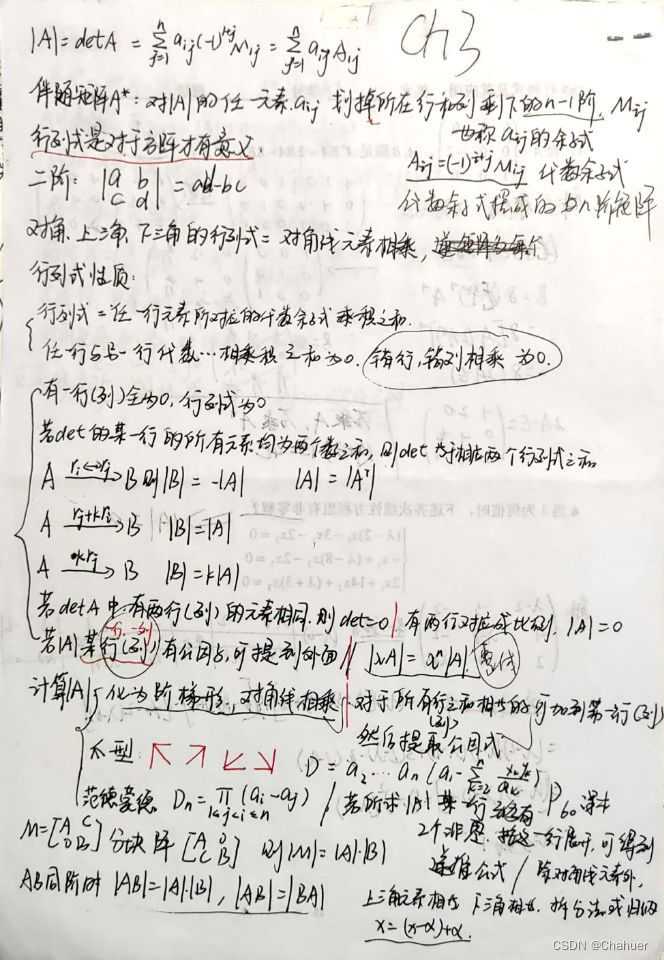 Ch3
|A|=detA=∑_{j=1}^{n} a_{ij}(-1)^{i+j}M_{ij}=∑_{j=1}^{n} a_{ij}A_{ij}
伴随矩阵A*:对|A|的任一元素a_{ij} 划掉所在行和列剩下的n-1阶, M_{ij}
也称a_{ij}的余子式
行列式是对于方阵才有意义.
A_{ij}=(-1)^{i+j}M_{ij} 代数余子式
二阶: |a b; c d|=ad-bc
代数余子式构成的为n阶矩阵
对角、上三角、下三角的行列式=对角线元素相乘,
行列式性质:
行列式=任一行元素所对应的代数余子式乘积之和.
任一行与另一行代数…相乘积之和为0.
有一行(列)全为0,行列式为0
若det的某一行的所有元素均为两个数之和,则det等于相应两个行列式之和
A —r_i↔r_j→ B 则|B|=-|A| |A|=|A^T|
A —r_j+kr_i→ B |B|=|A|
A —kr_j→ B |B|=k|A|
若detA中有两行(列)的元素相同,则det=0 | 有两行对应成比例,|A|=0
若|A|某行(列)有公因子,可提到外面 // |xA|=x^n|A|
一行、一列
计算|A| 化为阶梯形,对角线相乘 对于所有行之和相等的可加到第一行(列)
(列)
然后提取公因式
爪型: ↖ ↗ ↙ ↘ D=a_2…a_n(a_1-∑_{k=2}^{n}
范德蒙德 D_n=∏_{1≤j<i≤n}(a_i-a_j) / 若所求|A|某一行 有 P60
2个非零, 按这一行展开,可得到
递推公式 / 除对角线元素外,
M=[A C; 0 B] 分块阵 [A 0; C B] 则|M|=|A|·|B|
AB同阶时 |AB|=|A|·|B|, |AB|=|BA|
上三角元素相等 下三角相等. 拆分法或归纳
x=(x-α)+α.
CSDN @Chahuer